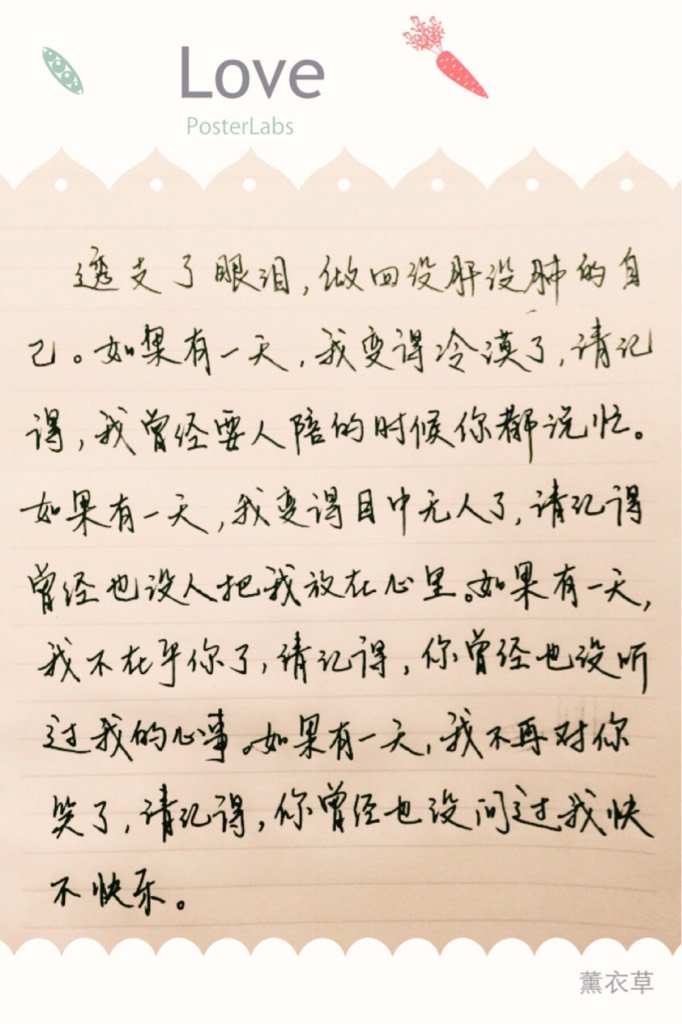 Love
PosterLabs
透支了眼泪,做回没肝没肺的自
己。如果有一天,我变得冷漠了,请记
得,我曾经要人陪的时候你都说忙。
如果有一天,我变得目中无人了,请记得
曾经也没人把我放在心里。如果有一天,
我不在乎你了,请记得,你曾经也没听
过我的心事。如果有一天,我不再对你
笑了,请记得,你曾经也没问过我快
不快乐。
薰衣草